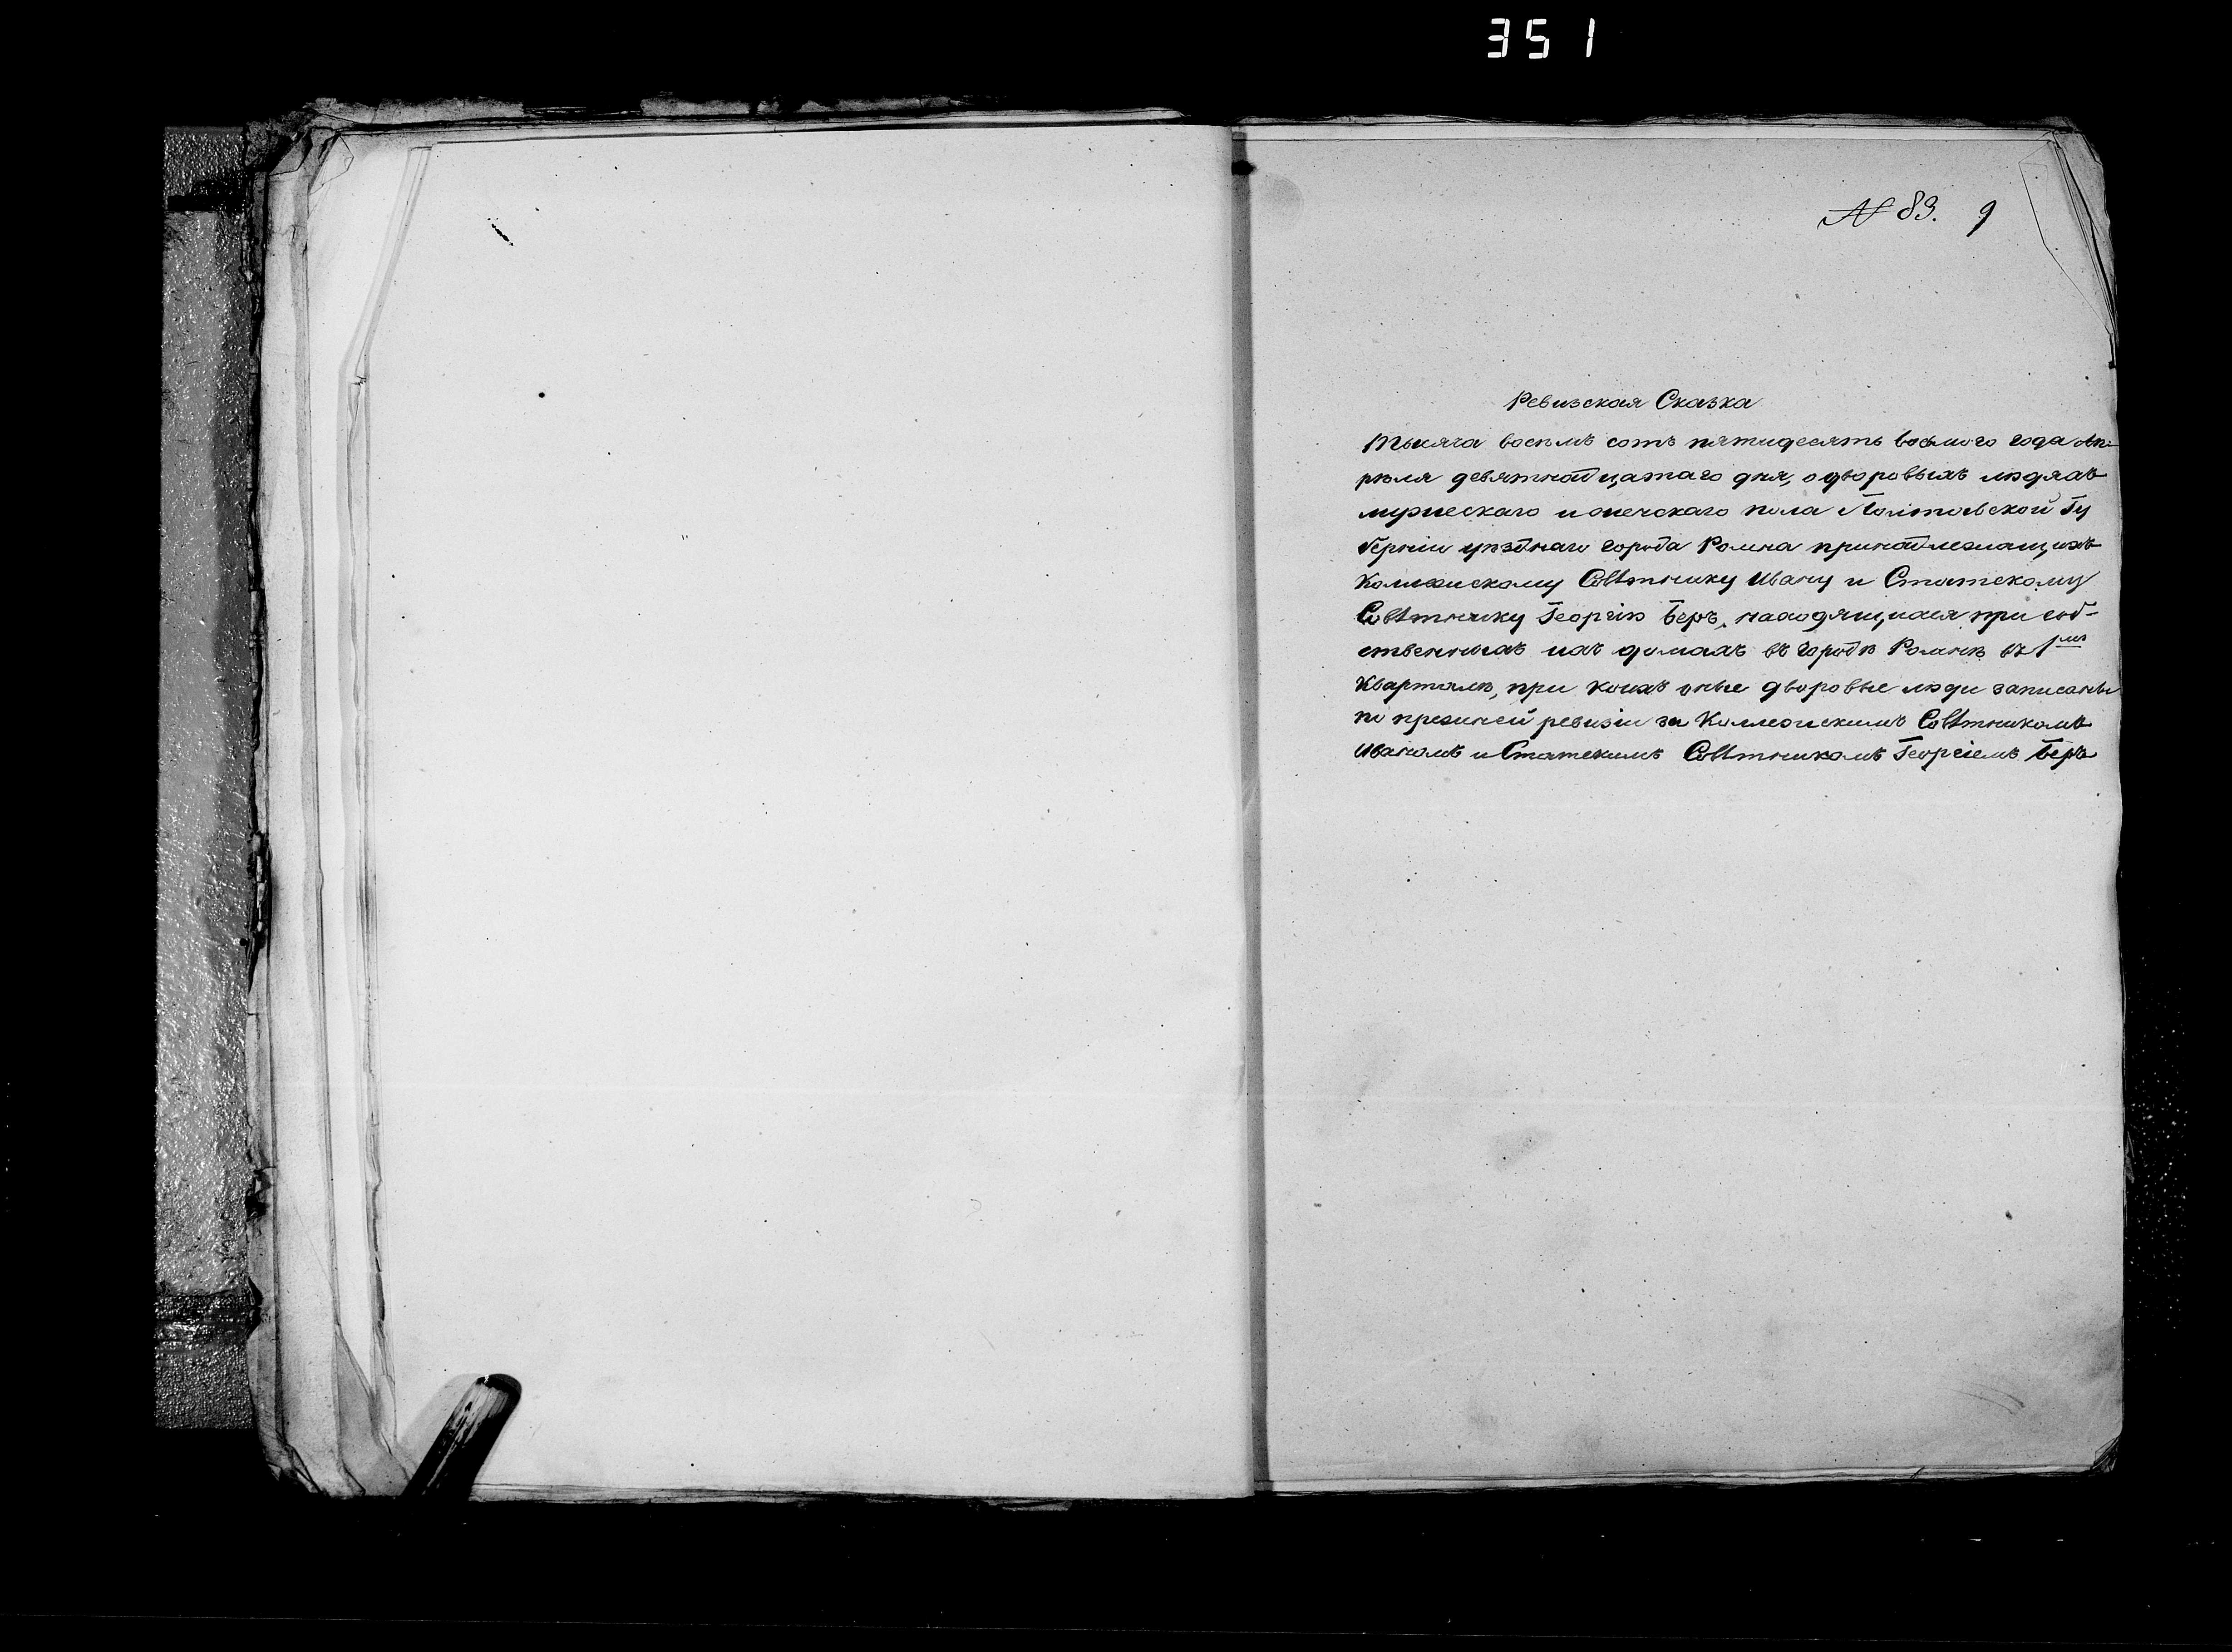 351
№ 83. 9
Ревизская Сказка
Тысяча восемь сотъ пятидесятъ восьмого года Ап-
рѣля девятнадцатаго дня, о дворовыхъ людяхъ
мужескаго и женскаго пола Полтавской Гу
берніи уѣзднаго города Ромна принадлежащихъ
Коллежскому Совѣтнику Ивану и Статскому
Совѣтнику Георгію Беръ, находящихся при соб-
ственныхъ ихъ домахъ въ городѣ Ромнѣ въ 1мъ
Кварталѣ, при коихъ оные дворовые люди записаны
по прежней ревизіи за Коллежскимъ Совѣтникомъ
Иваномъ и Статскимъ Совѣтникомъ Георгіемъ Беръ